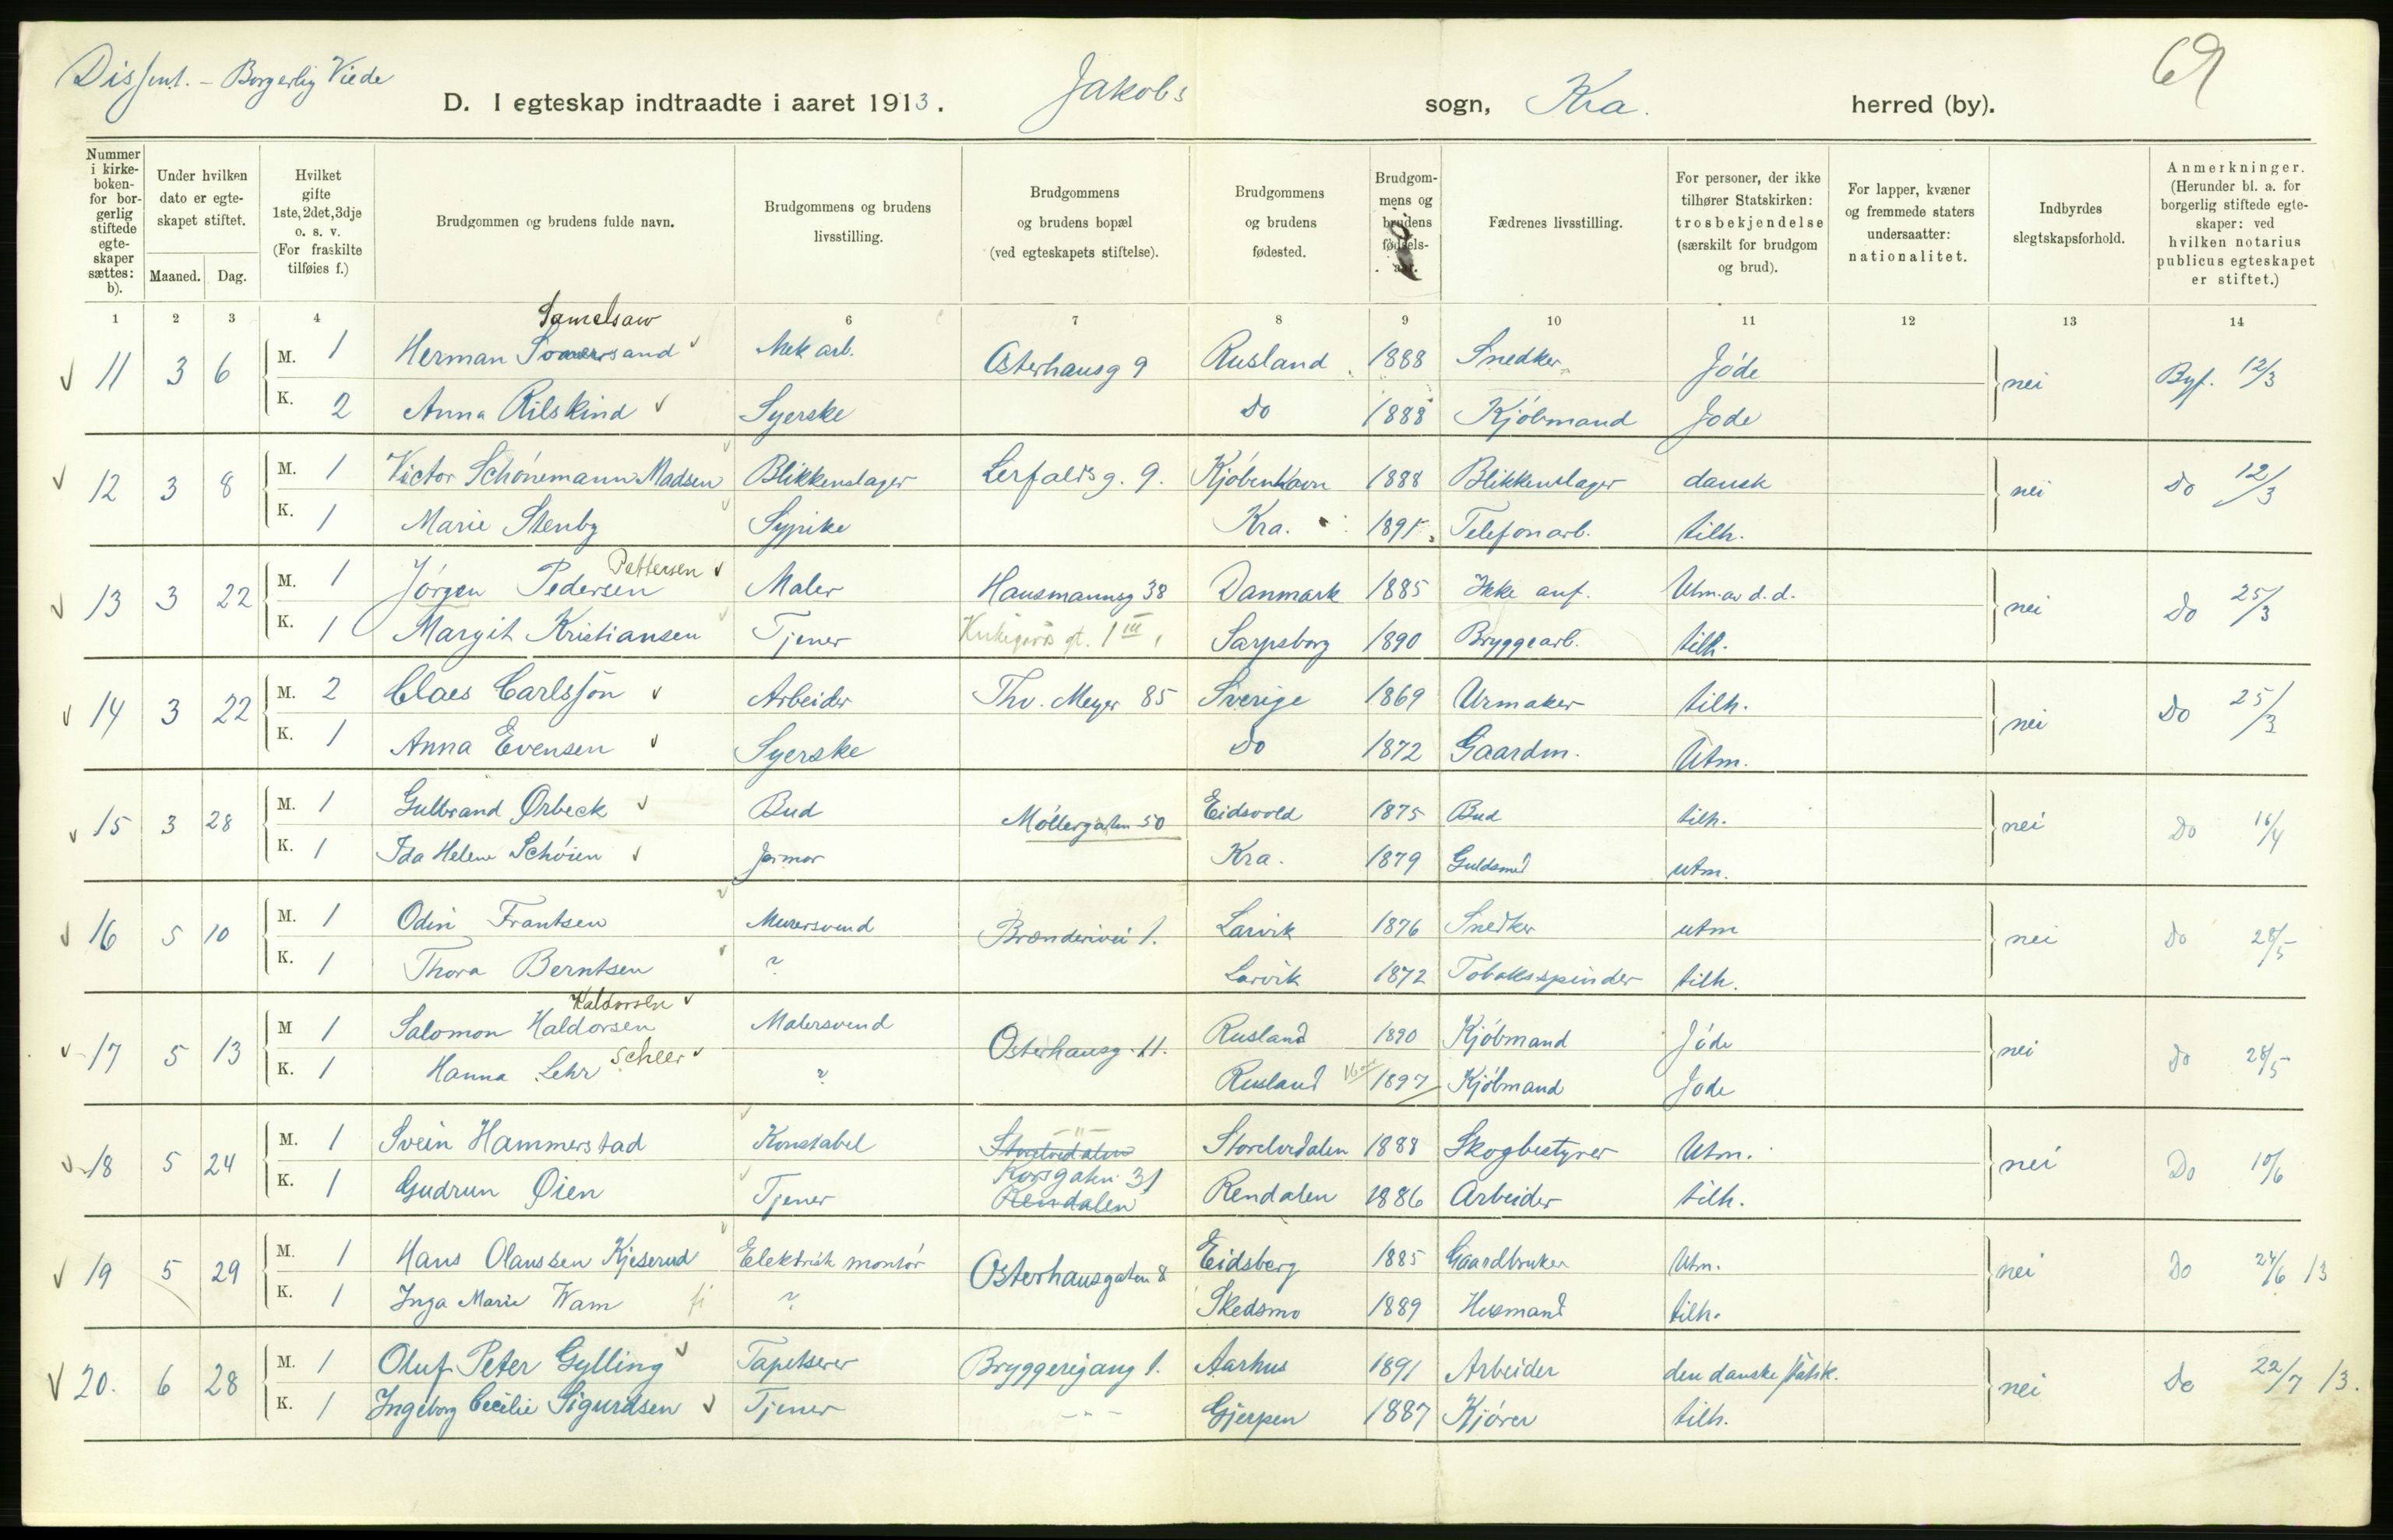 Dissent. – Borgerlig Viede
69
D. I egteskap indtraadte i aaret 1913. Jakobs sogn, Kra. herred (by).
Nummer i kirke-boken- for bor-gerlig stiftede egte-skaper sættes: b).
Under hvilken dato er egte-skapet stiftet.
Maaned. Dag.
Hvilket gifte 1ste, 2det, 3dje o. s. v. (For fraskilte tilføies f.)
Brudgommen og brudens fulde navn.
Brudgommens og brudens livsstilling.
Brudgommens og brudens bopæl (ved egteskapets stiftelse).
Brudgommens og brudens fødested.
Brudgom-mens og brudens fødsels-aar.
Fædrenes livsstilling.
For personer, der ikke tilhører Statskirken: trosbekjendelse (særskilt for brudgom og brud).
For lapper, kvæner og fremmede staters undersaatter: nationalitet.
Indbyrdes slegtskapsforhold.
Anmerkninger. (Herunder bl. a. for borgerlig stiftede egte-skaper: ved hvilken notarius publicus egteskapet er stiftet.)
1 2 3 4 6 7 8 9 10 11 12 13 14
Samelsaw
11 3 6 M. 1 Herman Mek arb. Osterhausg 9 Rusland 1888 Snedker Jøde nei Byf. 12/3
K. 2 Anna Rilskind Syerske Do 1888 Kjøbmand Jøde
12 3 8 M. 1 Victor Schønemann Madsen Blikkenslager Lerfaldsg. 9. Kjøbenhavn 1888 Blikkenslager dansk nei Do 12/3
K. 1 Marie Stenby Sypike Kra. 1891 Telefonarb. tilh.
Pettersen
13 3 22 M. 1 Jørgen Pedersen Maler Hausmannsg 38 Danmark 1885 Ikke anf. Utm. av d. d. nei Do 25/3
K. 1 Margit Kristiansen Tjener gt. 1 III Sarpsborg 1890 Bryggearb. tilh.
14 3 22 M. 2 Claes Carlsson Arbeider Thv. Meyer 85 Sverige 1869 Urmaker tilh. nei Do 25/3
K. 1 Anna Evensen Syerske Do 1872 Gaardm. Utm.
15 3 28 M. 1 Gulbrand Ørbeck Bud Møllergaten 50 Eidsvold 1875 Bud tilh. nei Do 16/4
K. 1 Ida Helene Schøien Jormor Kra. 1879 Guldsmed utm.
16 5 10 M. 1 Odin Frantsen Murersvend Brenderivei 1. Larvik 1876 Snedker utm nei Do 28/5
K. 1 Thora Berntsen ? Larvik 1872 Tobaksspinder tilh.
Kaldorsen
17 5 13 M 1 Salomon Haldorsen Malersvend Osterhausg. 11. Rusland 1890 Kjøbmand Jøde nei Do 28/5
K. 1 Hanna Lehr Scheer ? Rusland 16 aar 1897 Kjøbmand Jøde
18 5 24 M. 1 Svein Hammerstad Konstabel Storelvedalen -"- Storelvdalen 1888 Skogbestyrer Utm. nei Do 10/6
Korsgaten 31
K. 1 Gudrun Øien Tjener Rendalen Rendalen 1886 Arbeider tilh.
19 5 29 M. 1 Hans Olaussen Kjeserud Elektrisk montør Osterhausgaten 8 Eidsberg 1885 Gaardbruker Utm. nei Do 24/6 13
K. 1 Inga Marie Wam fi ? Skedsmo 1889 Husmand tilh.
20. 6 28 M. 1 Oluf Peter Gylling Tapetserer Bryggerigang 1. Aarhus 1891 Arbeider den danske statsk. nei Do 22/7 13.
K. 1 Ingeborg Cecilie Sigurdsen Tjener -"- Gjerpen 1887 Kjører tilh.